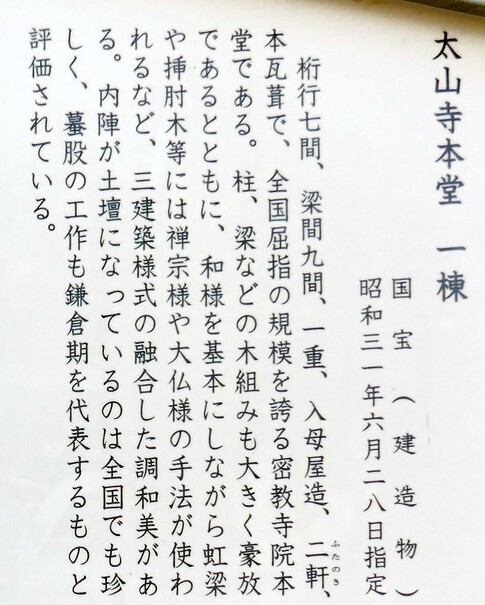 太山寺本堂 一棟
国宝（建造物）
昭和三一年六月二八日指定
桁行七間、梁間九間、一重、入母屋造、二軒、
ふたのき
本瓦葺で、全国屈指の規模を誇る密教寺院本
堂である。柱、梁などの木組みも大きく豪放
であるとともに、和様を基本にしながら虹梁
や挿肘木等には禅宗様や大仏様の手法が使わ
れるなど、三建築様式の融合した調和美があ
る。内陣が土壇になっているのは全国でも珍
しく、蟇股の工作も鎌倉期を代表するものと
評価されている。